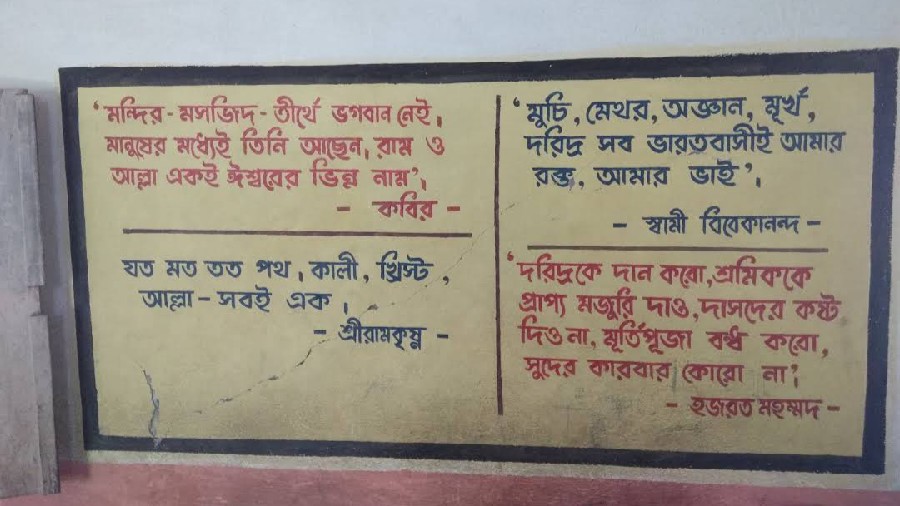 ‘মন্দির - মসজিদ - তীর্থে ভগবান নেই,
মানুষের মধ্যেই তিনি আছেন, রাম ও
আল্লা একই ঈশ্বরের ভিন্ন নাম’।
- কবির -
যত মত তত পথ, কালী, খ্রিস্ট,
আল্লা - সবই এক।
- শ্রীরামকৃষ্ণ -
‘মুচি, মেথর, অজ্ঞান, মূর্খ,
দরিদ্র সব ভারতবাসীই আমার
রক্ত, আমার ভাই’।
- স্বামী বিবেকানন্দ -
‘দরিদ্রকে দান করো, শ্রমিককে
প্রাপ্য মজুরি দাও, দাসদের কষ্ট
দিও না, মূর্তিপূজা বন্ধ করো,
সুদের কারবার কোরো না’।
- হজরত মহম্মদ -